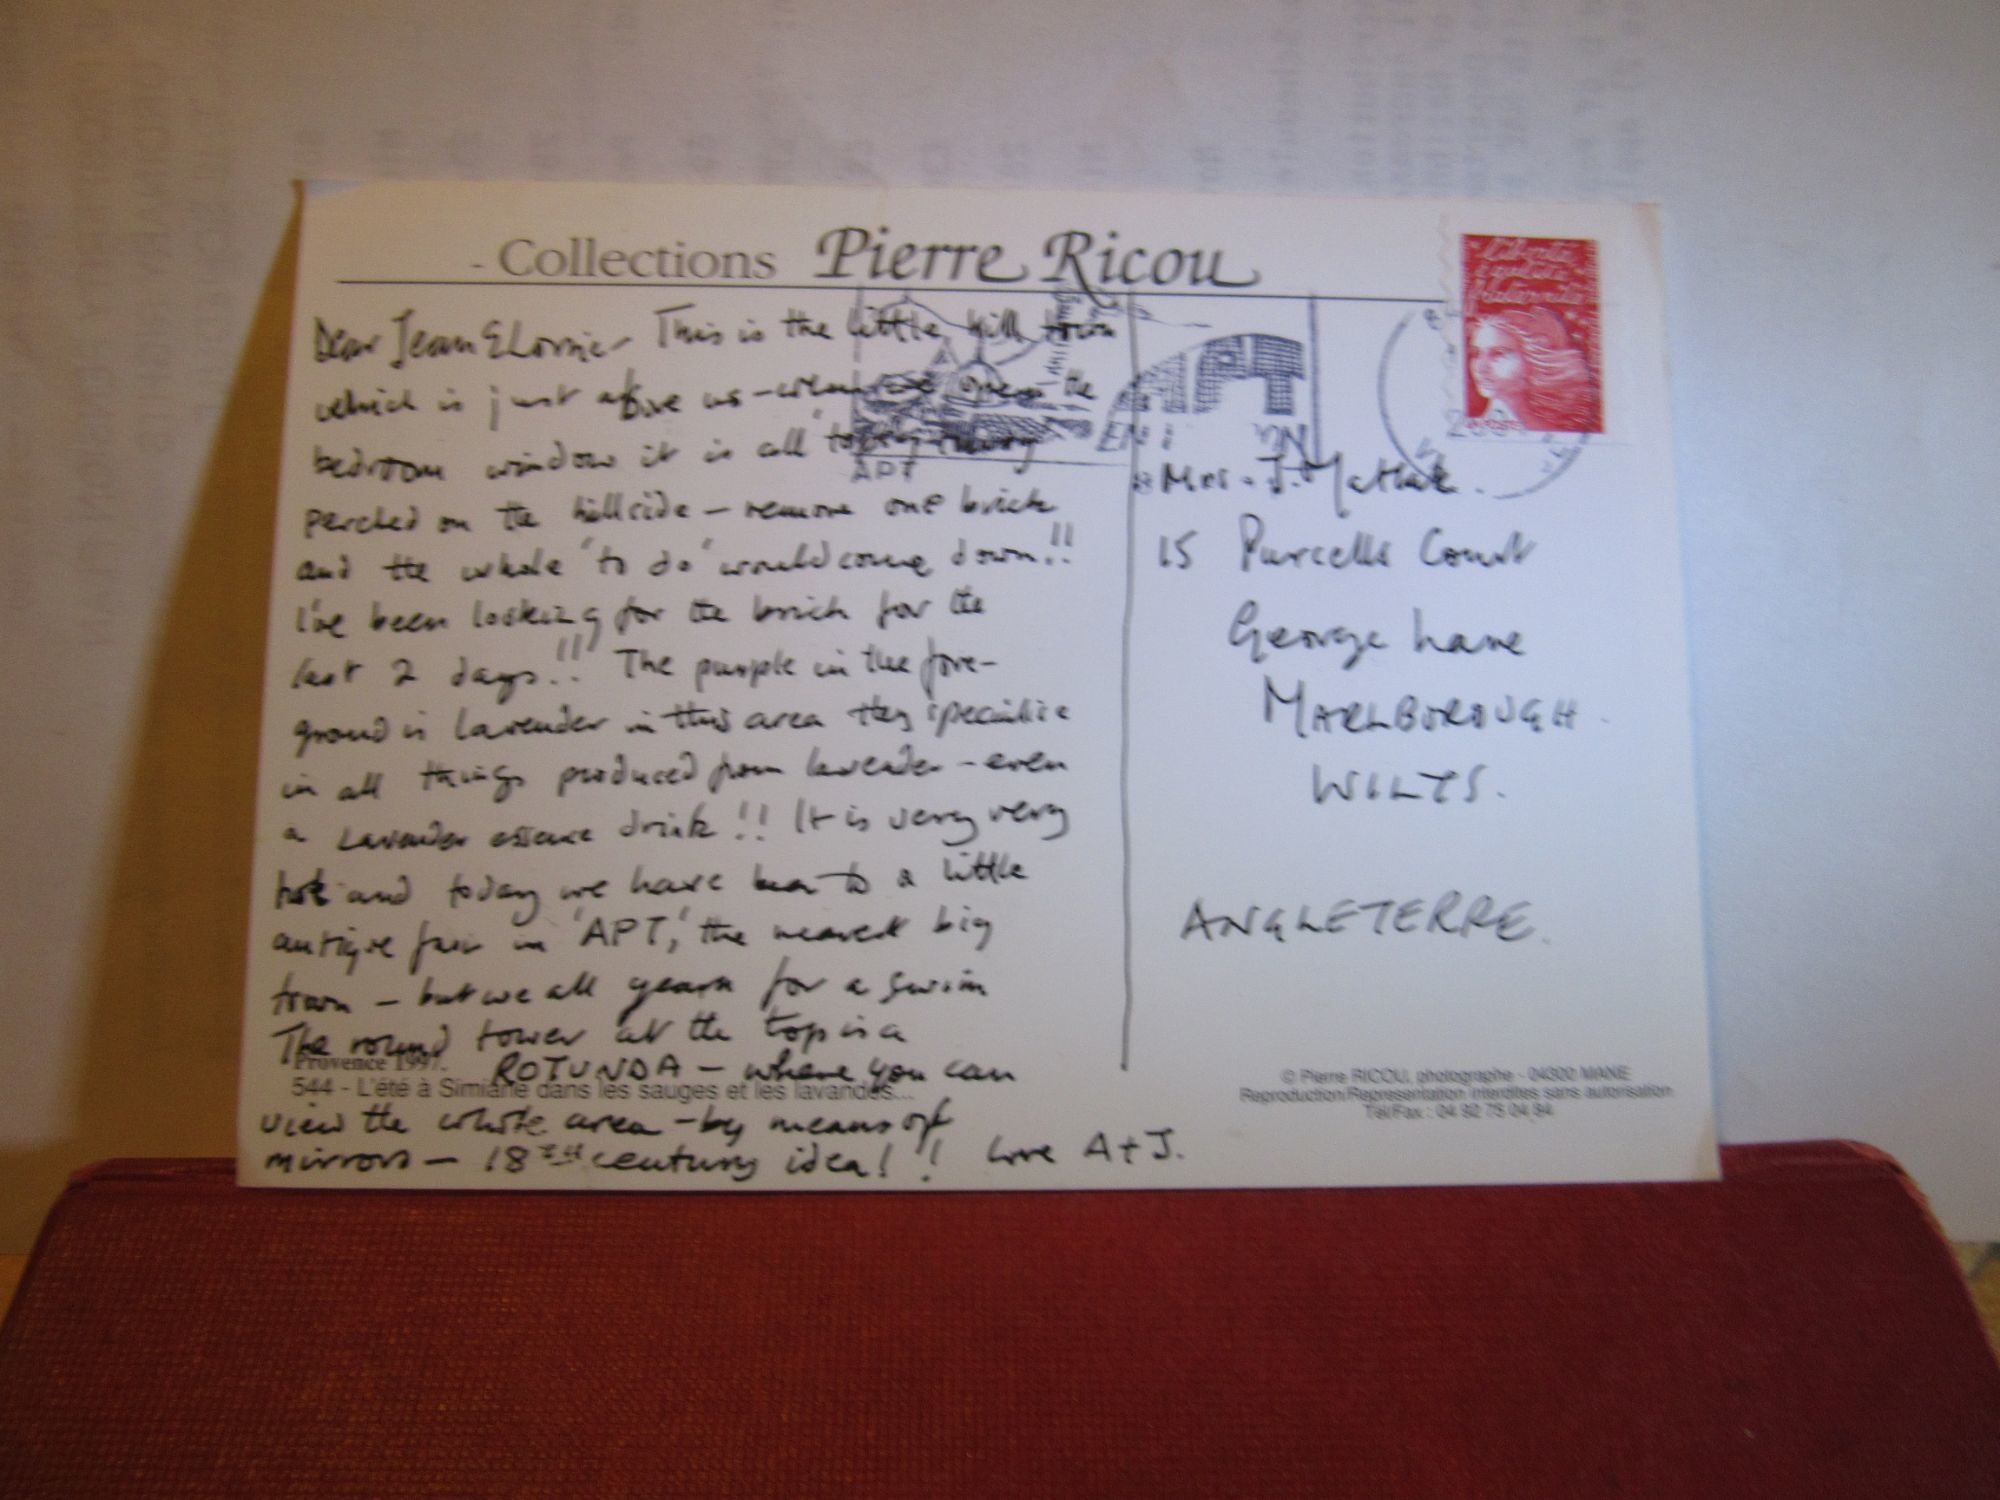 - Collections Pierre Ricou
Liberté
égalité
fraternité
Dear Jean & Lorrie - This is the little hill town
which is just above us - when we open the
bedroom window it is all 'topsy turvy'
perched on the hillside - remove one brick
and the whole 'to do' would come down!!
I've been looking for the brick for the
last 2 days!! The purple in the fore-
ground is lavender in this area they specialise
in all things produced from lavender - even
a lavender essence drink!! It is very very
hot and today we have been to a little
antique fair in 'APT,' the nearest big
town - but we all yearn for a swim
The round tower at the top is a
ROTUNDA - where you can
view the whole area - by means of
mirrors - 18TH century idea!! Love A + J.
Provence 1997.
544 - L'été à Simiane dans les sauges et les lavandes...
APT
APT
EN
Mrs. J.
15 Purcells Court
George Lane
MARLBOROUGH.
WILTS.
ANGLETERRE.
© Pierre RICOU, photographe - 04300 MANE
Reproduction/Representation interdites sans autorisation
Tél/Fax : 04 92 75 04 84